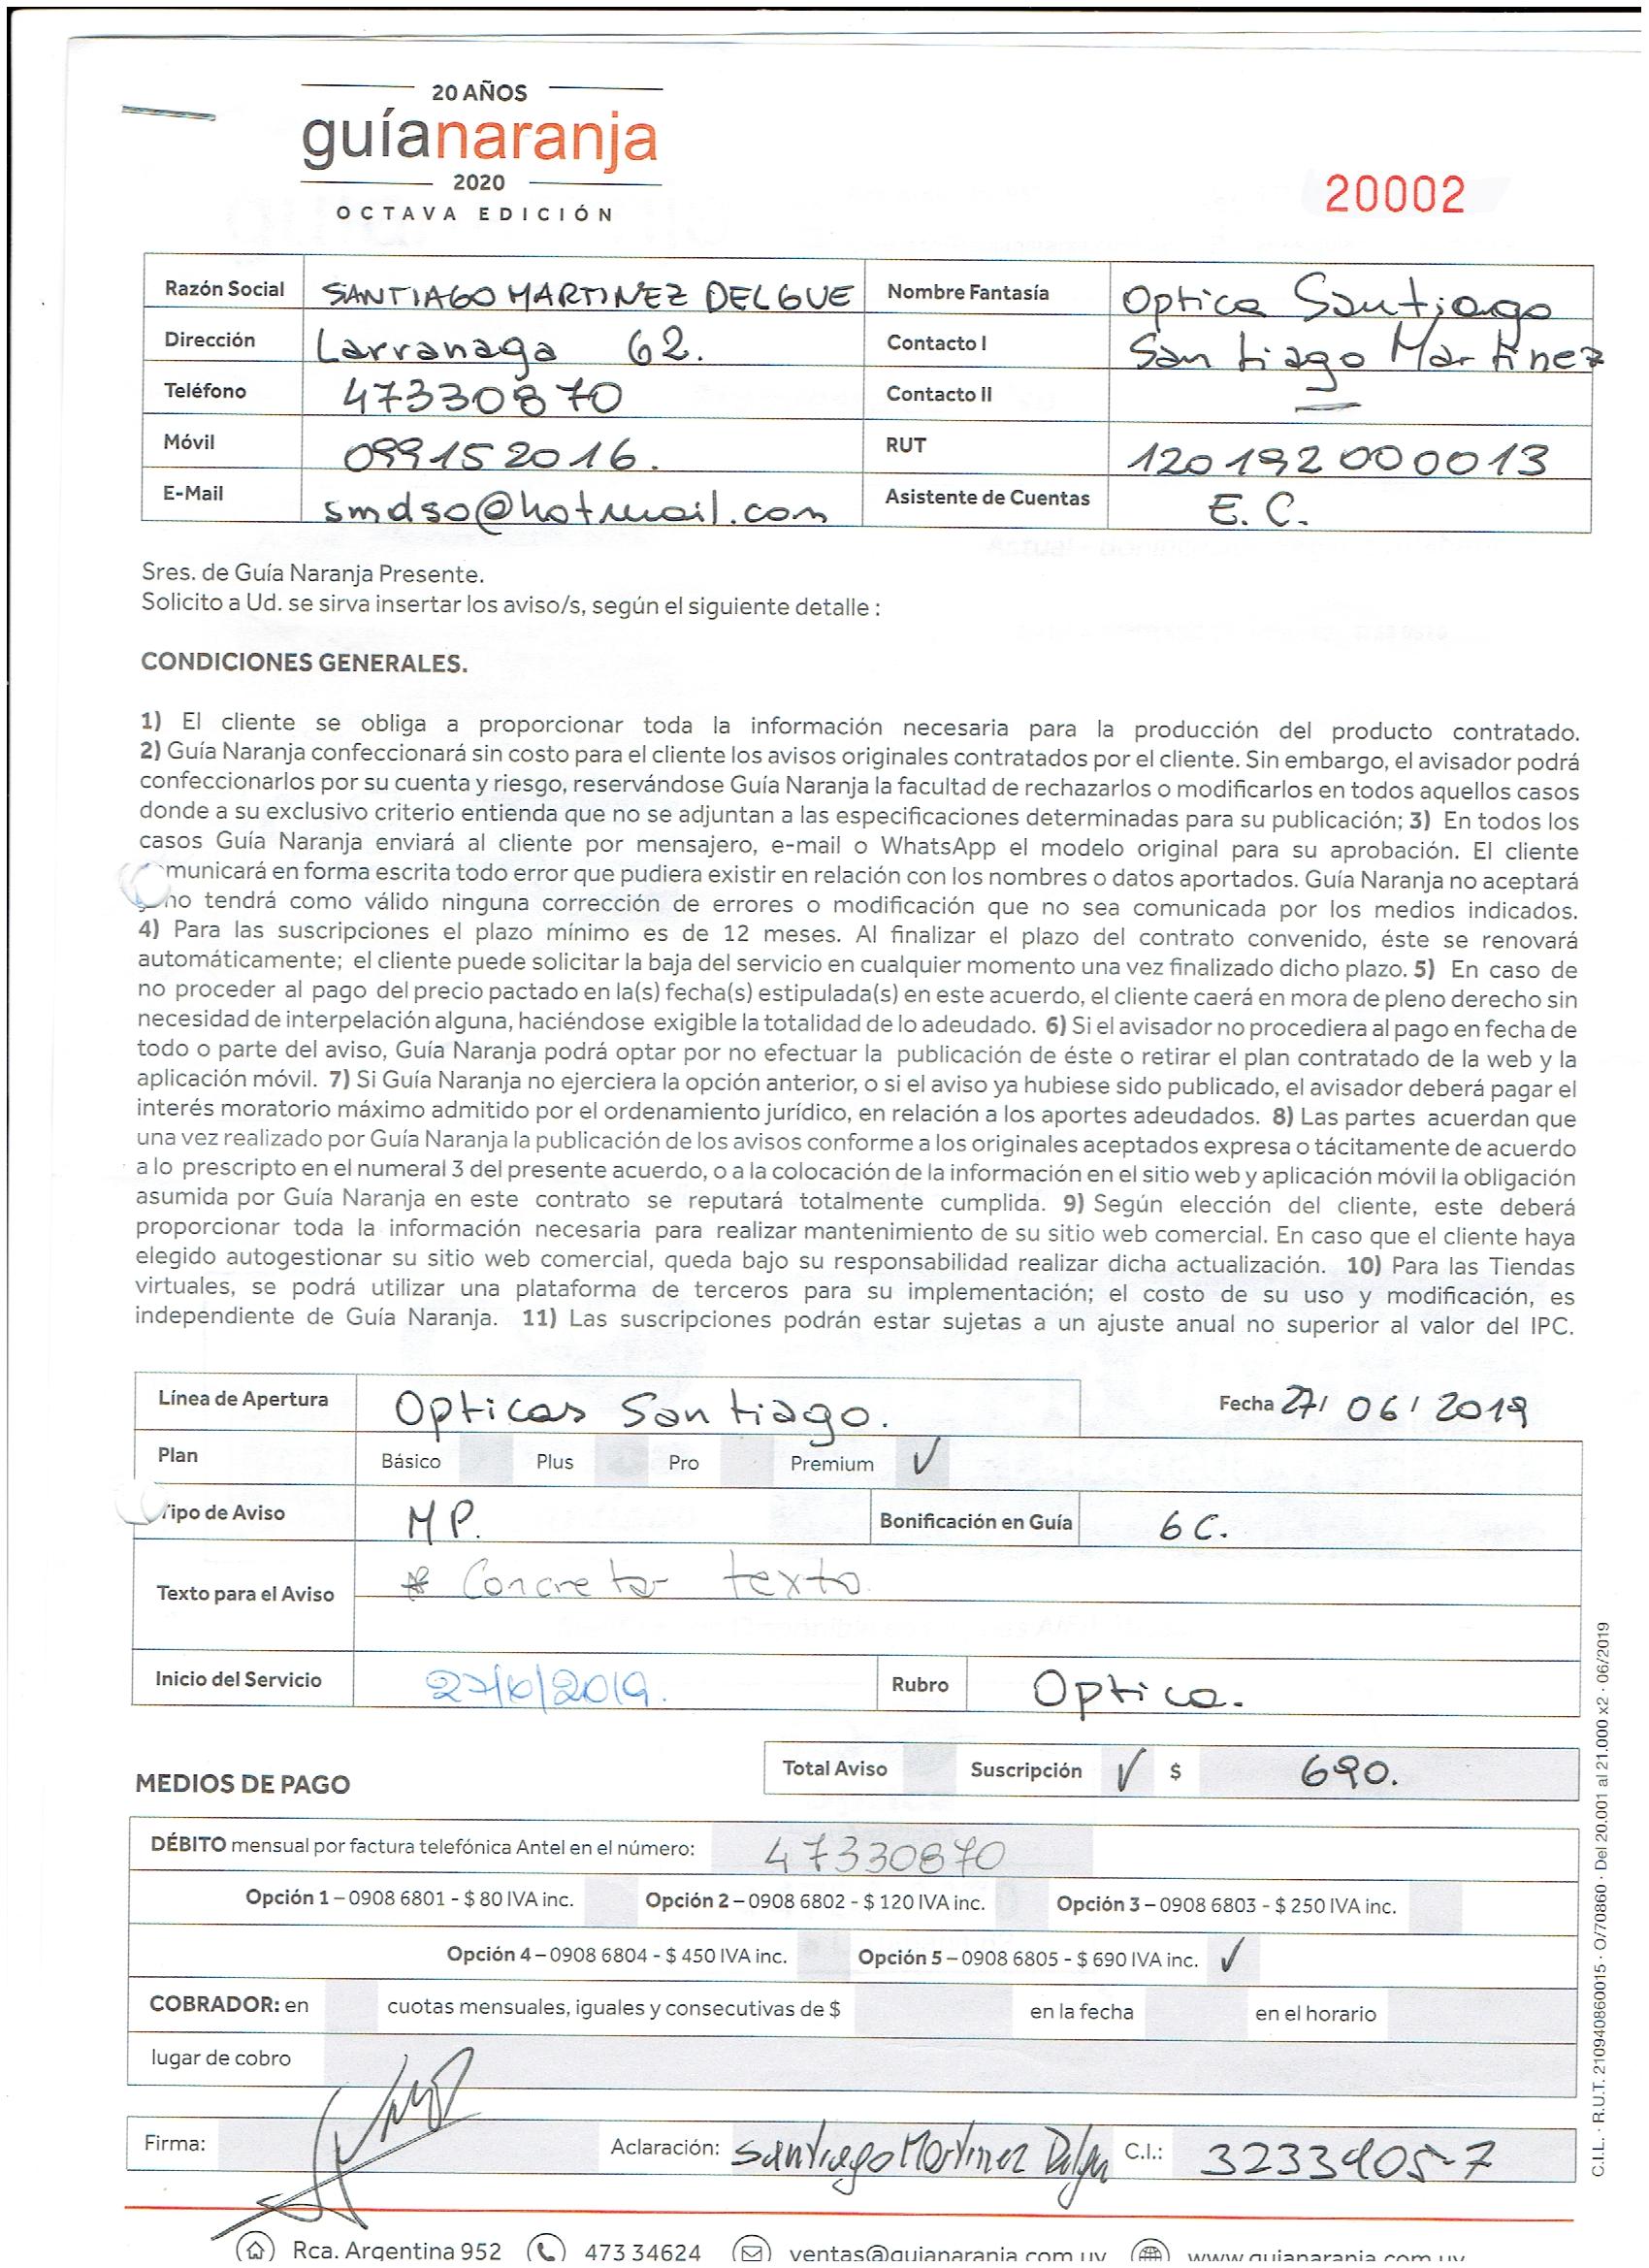 20 AÑOS
guíanaranja
2020
OCTAVA EDICIÓN
20002
Razón Social SANTIAGO MARTINEZ DELGUE Nombre Fantasía Optica Santiago
Dirección Larranaga 62. Contacto I Santiago Martinez
Teléfono 47330870 Contacto II —
Móvil 099152016. RUT 120192000013
E-Mail smdso@hotmail.com Asistente de Cuentas E. C.
Sres. de Guía Naranja Presente.
Solicito a Ud. se sirva insertar los aviso/s, según el siguiente detalle :
CONDICIONES GENERALES.
1) El cliente se obliga a proporcionar toda la información necesaria para la producción del producto contratado.
2) Guía Naranja confeccionará sin costo para el cliente los avisos originales contratados por el cliente. Sin embargo, el avisador podrá
confeccionarlos por su cuenta y riesgo, reservándose Guía Naranja la facultad de rechazarlos o modificarlos en todos aquellos casos
donde a su exclusivo criterio entienda que no se adjuntan a las especificaciones determinadas para su publicación; 3) En todos los
casos Guía Naranja enviará al cliente por mensajero, e-mail o WhatsApp el modelo original para su aprobación. El cliente
municará en forma escrita todo error que pudiera existir en relación con los nombres o datos aportados. Guía Naranja no aceptará
no tendrá como válido ninguna corrección de errores o modificación que no sea comunicada por los medios indicados.
4) Para las suscripciones el plazo mínimo es de 12 meses. Al finalizar el plazo del contrato convenido, éste se renovará
automáticamente; el cliente puede solicitar la baja del servicio en cualquier momento una vez finalizado dicho plazo. 5) En caso de
no proceder al pago del precio pactado en la(s) fecha(s) estipulada(s) en este acuerdo, el cliente caerá en mora de pleno derecho sin
necesidad de interpelación alguna, haciéndose exigible la totalidad de lo adeudado. 6) Si el avisador no procediera al pago en fecha de
todo o parte del aviso, Guía Naranja podrá optar por no efectuar la publicación de éste o retirar el plan contratado de la web y la
aplicación móvil. 7) Si Guía Naranja no ejerciera la opción anterior, o si el aviso ya hubiese sido publicado, el avisador deberá pagar el
interés moratorio máximo admitido por el ordenamiento jurídico, en relación a los aportes adeudados. 8) Las partes acuerdan que
una vez realizado por Guía Naranja la publicación de los avisos conforme a los originales aceptados expresa o tácitamente de acuerdo
a lo prescripto en el numeral 3 del presente acuerdo, o a la colocación de la información en el sitio web y aplicación móvil la obligación
asumida por Guía Naranja en este contrato se reputará totalmente cumplida. 9) Según elección del cliente, este deberá
proporcionar toda la información necesaria para realizar mantenimiento de su sitio web comercial. En caso que el cliente haya
elegido autogestionar su sitio web comercial, queda bajo su responsabilidad realizar dicha actualización. 10) Para las Tiendas
virtuales, se podrá utilizar una plataforma de terceros para su implementación; el costo de su uso y modificación, es
independiente de Guía Naranja. 11) Las suscripciones podrán estar sujetas a un ajuste anual no superior al valor del IPC.
Línea de Apertura Opticas Santiago. Fecha 27/ 06 / 2019
Plan Básico Plus Pro Premium ✓
Tipo de Aviso MP. Bonificación en Guía 6 C.
Texto para el Aviso * Concretar texto.
Inicio del Servicio 27/6/2019. Rubro Optica.
Total Aviso Suscripción ✓ $ 690.
MEDIOS DE PAGO
DÉBITO mensual por factura telefónica Antel en el número: 47330870
Opción 1 – 0908 6801 - $ 80 IVA inc. Opción 2 – 0908 6802 - $ 120 IVA inc. Opción 3 – 0908 6803 - $ 250 IVA inc.
Opción 4 – 0908 6804 - $ 450 IVA inc. Opción 5 – 0908 6805 - $ 690 IVA inc. ✓
COBRADOR: en cuotas mensuales, iguales y consecutivas de $ en la fecha en el horario
lugar de cobro
Firma: Aclaración: Santiago Martinez Delgue C.I.: 3233405-7
Rca. Argentina 952 473 34624 ventas@guianaranja.com.uy www.guianaranja.com.uy
C.I.L. · R.U.T. 210940860015 · O/70860 · Del 20.001 al 21.000 x2 · 06/2019